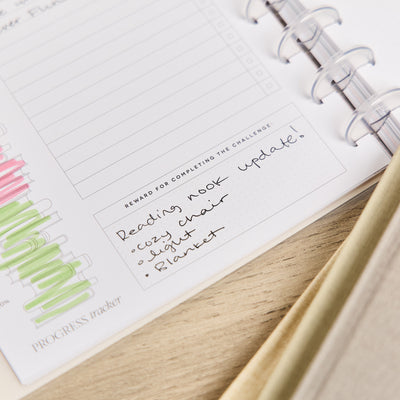 REWARD FOR COMPLETING THE CHALLENGE
Reading nook update!
• cozy chair
• light
• Blanket
PROGRESS tracker